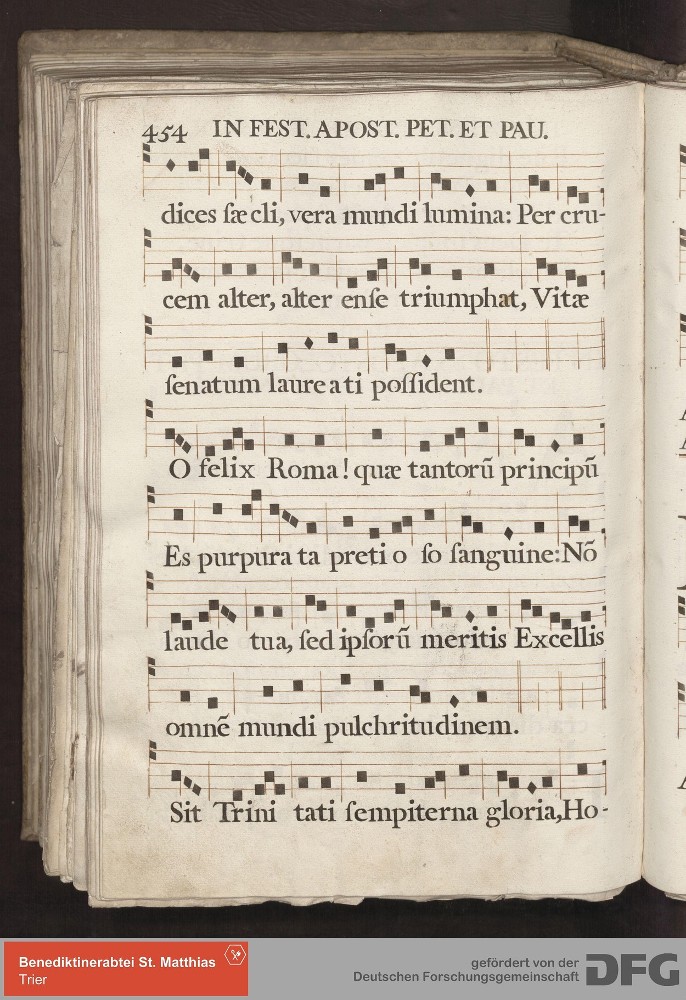 454 IN FEST. APOST. PET. ET PAU.
dices ſæ cli, vera mundi lumina: Per cru-
cem alter, alter enſe triumphat, Vitæ
ſenatum laure a ti poſſident.
O felix Roma! quæ tantorū principū
Es purpura ta preti o ſo ſanguine: Nō
laude tua, ſed ipſorū meritis Excellis
omnē mundi pulchritudinem.
Sit Trini tati ſempiterna gloria, Ho-
Benediktinerabtei St. Matthias
Trier
gefördert von der
Deutschen Forschungsgemeinschaft
DFG